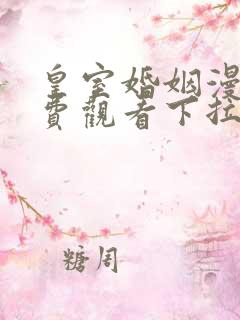 皇室婚姻漫
費觀看下拉
糖周